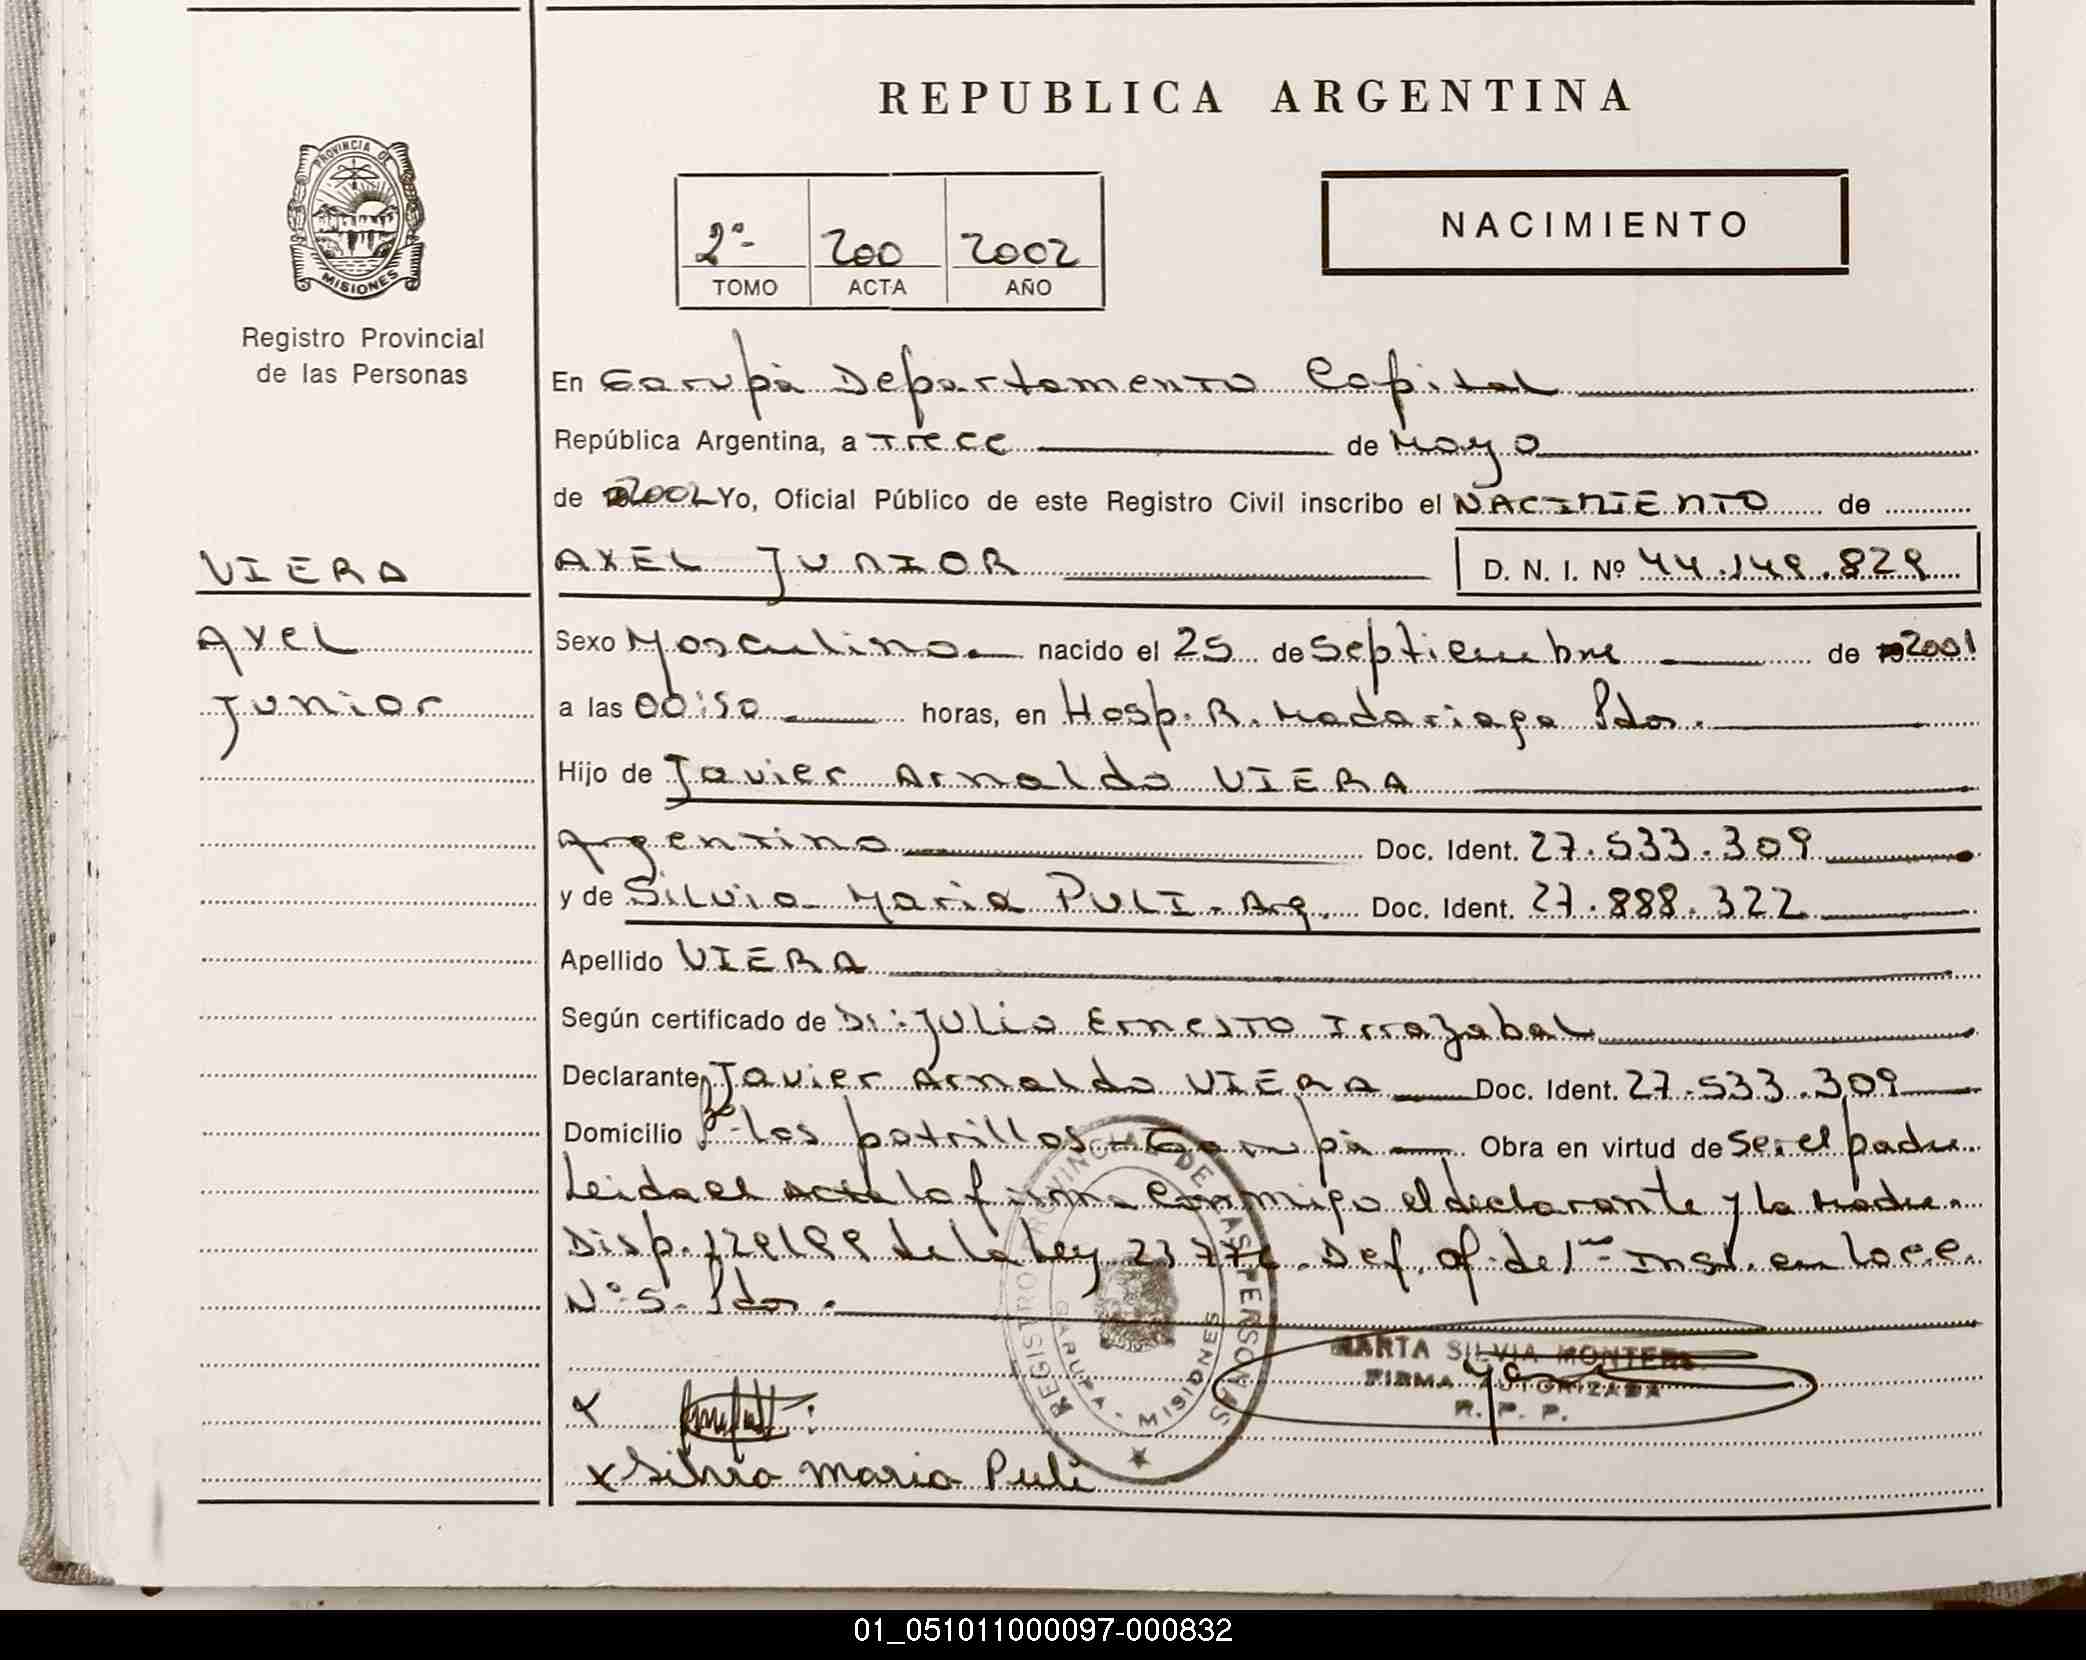 REPUBLICA ARGENTINA
PROVINCIA DE MISIONES
Registro Provincial
de las Personas
2º- 200 2002
TOMO ACTA AÑO
NACIMIENTO
En Garupà Departamento Capital
República Argentina, a Trece de Mayo
de 2002 Yo, Oficial Público de este Registro Civil inscribo el NACIMIENTO de
VIERA
AXEL JUNIOR D. N. I. Nº 44.149.829
Axel
Junior
Sexo Masculino nacido el 25 de Septiembre de 2001
a las 00:50 horas, en Hosp. R. Madariaga Pdas.
Hijo de Javier Arnaldo VIERA
Argentino Doc. Ident. 27.533.309
y de Silvia Maria PULI - Arg. Doc. Ident. 27.888.322
Apellido VIERA
Según certificado de Dr: Julio Ernesto Irrazabal
Declarante Javier Arnaldo VIERA Doc. Ident. 27.533.309
Domicilio Bº- Los potrillos - Garupà Obra en virtud de ser el padre.
Leida el acta la firma conmigo el declarante y la Madre.
Disp. 129/99 de la Ley 23776. Def. Of. de 1ra Inst. en lo C.C.
Nº 5 - Pdas.
REGISTRO PROVINCIAL DE LAS PERSONAS
GARUPA - MISIONES
MARTA SILVIA MONTERO
FIRMA AUTORIZADA
R. P. P.
x
x Silvia Maria Puli
01_051011000097-000832